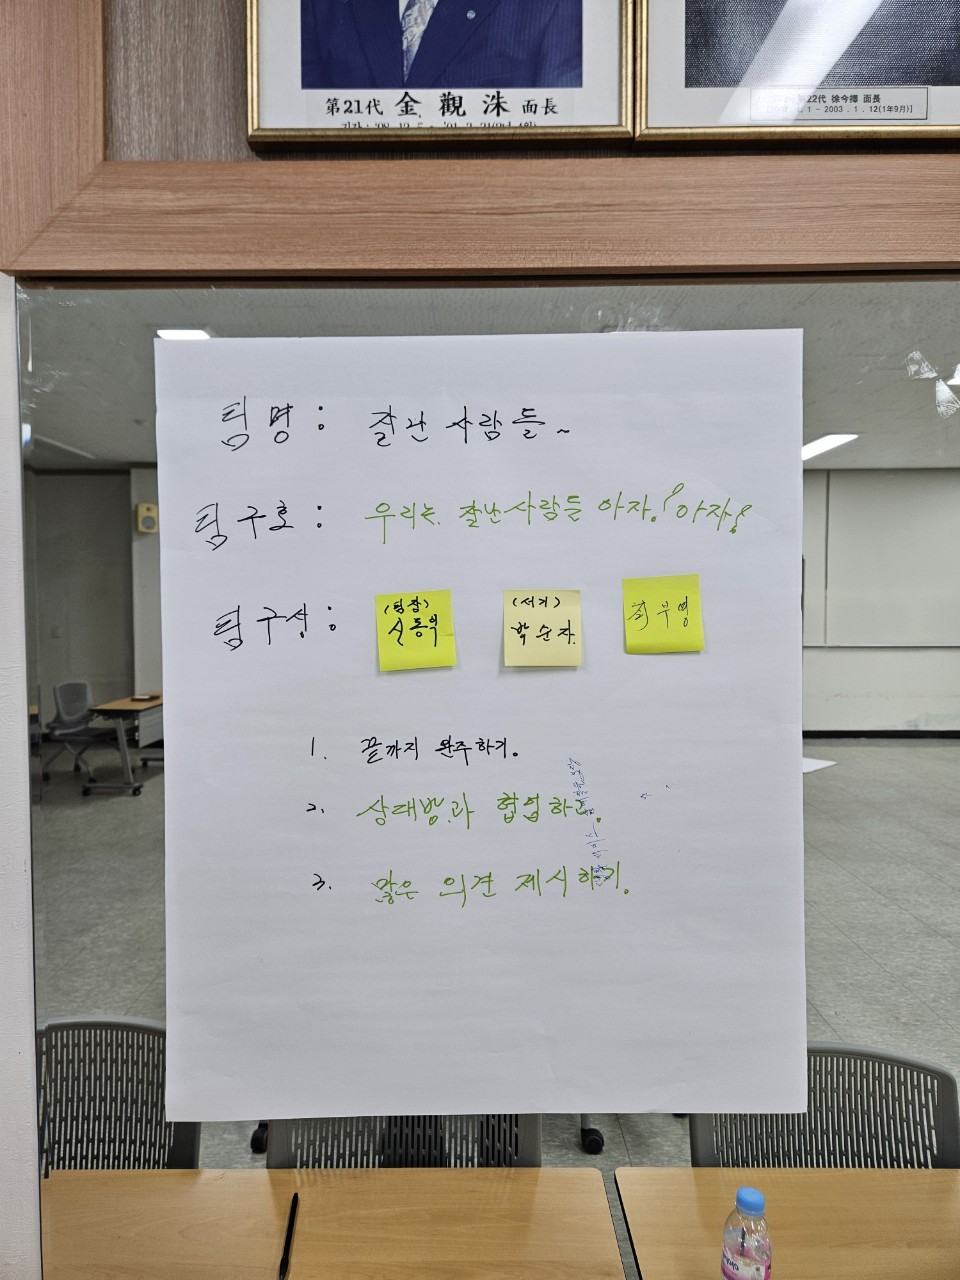 第21代 金觀洙 面長
22代 徐今擇 面長
1 ~ 2003 . 1 . 12(1年9月)]
팀명 : 잘난 사람들~
팀구호 : 우리는 잘난사람들 아자! 아자!
팀구성 :
(팀장)
신동익
(서기)
박순자
최부영
1. 끝까지 완주하기.
2. 상대방과 협업하고.
3. 많은 의견 제시하기.